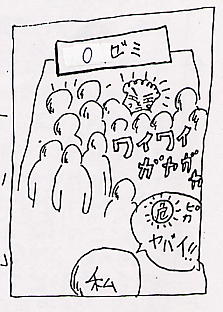 ○ ゼミ
ワイワイ
ガヤガヤ
危
ピカ
ヤバイ!!
私